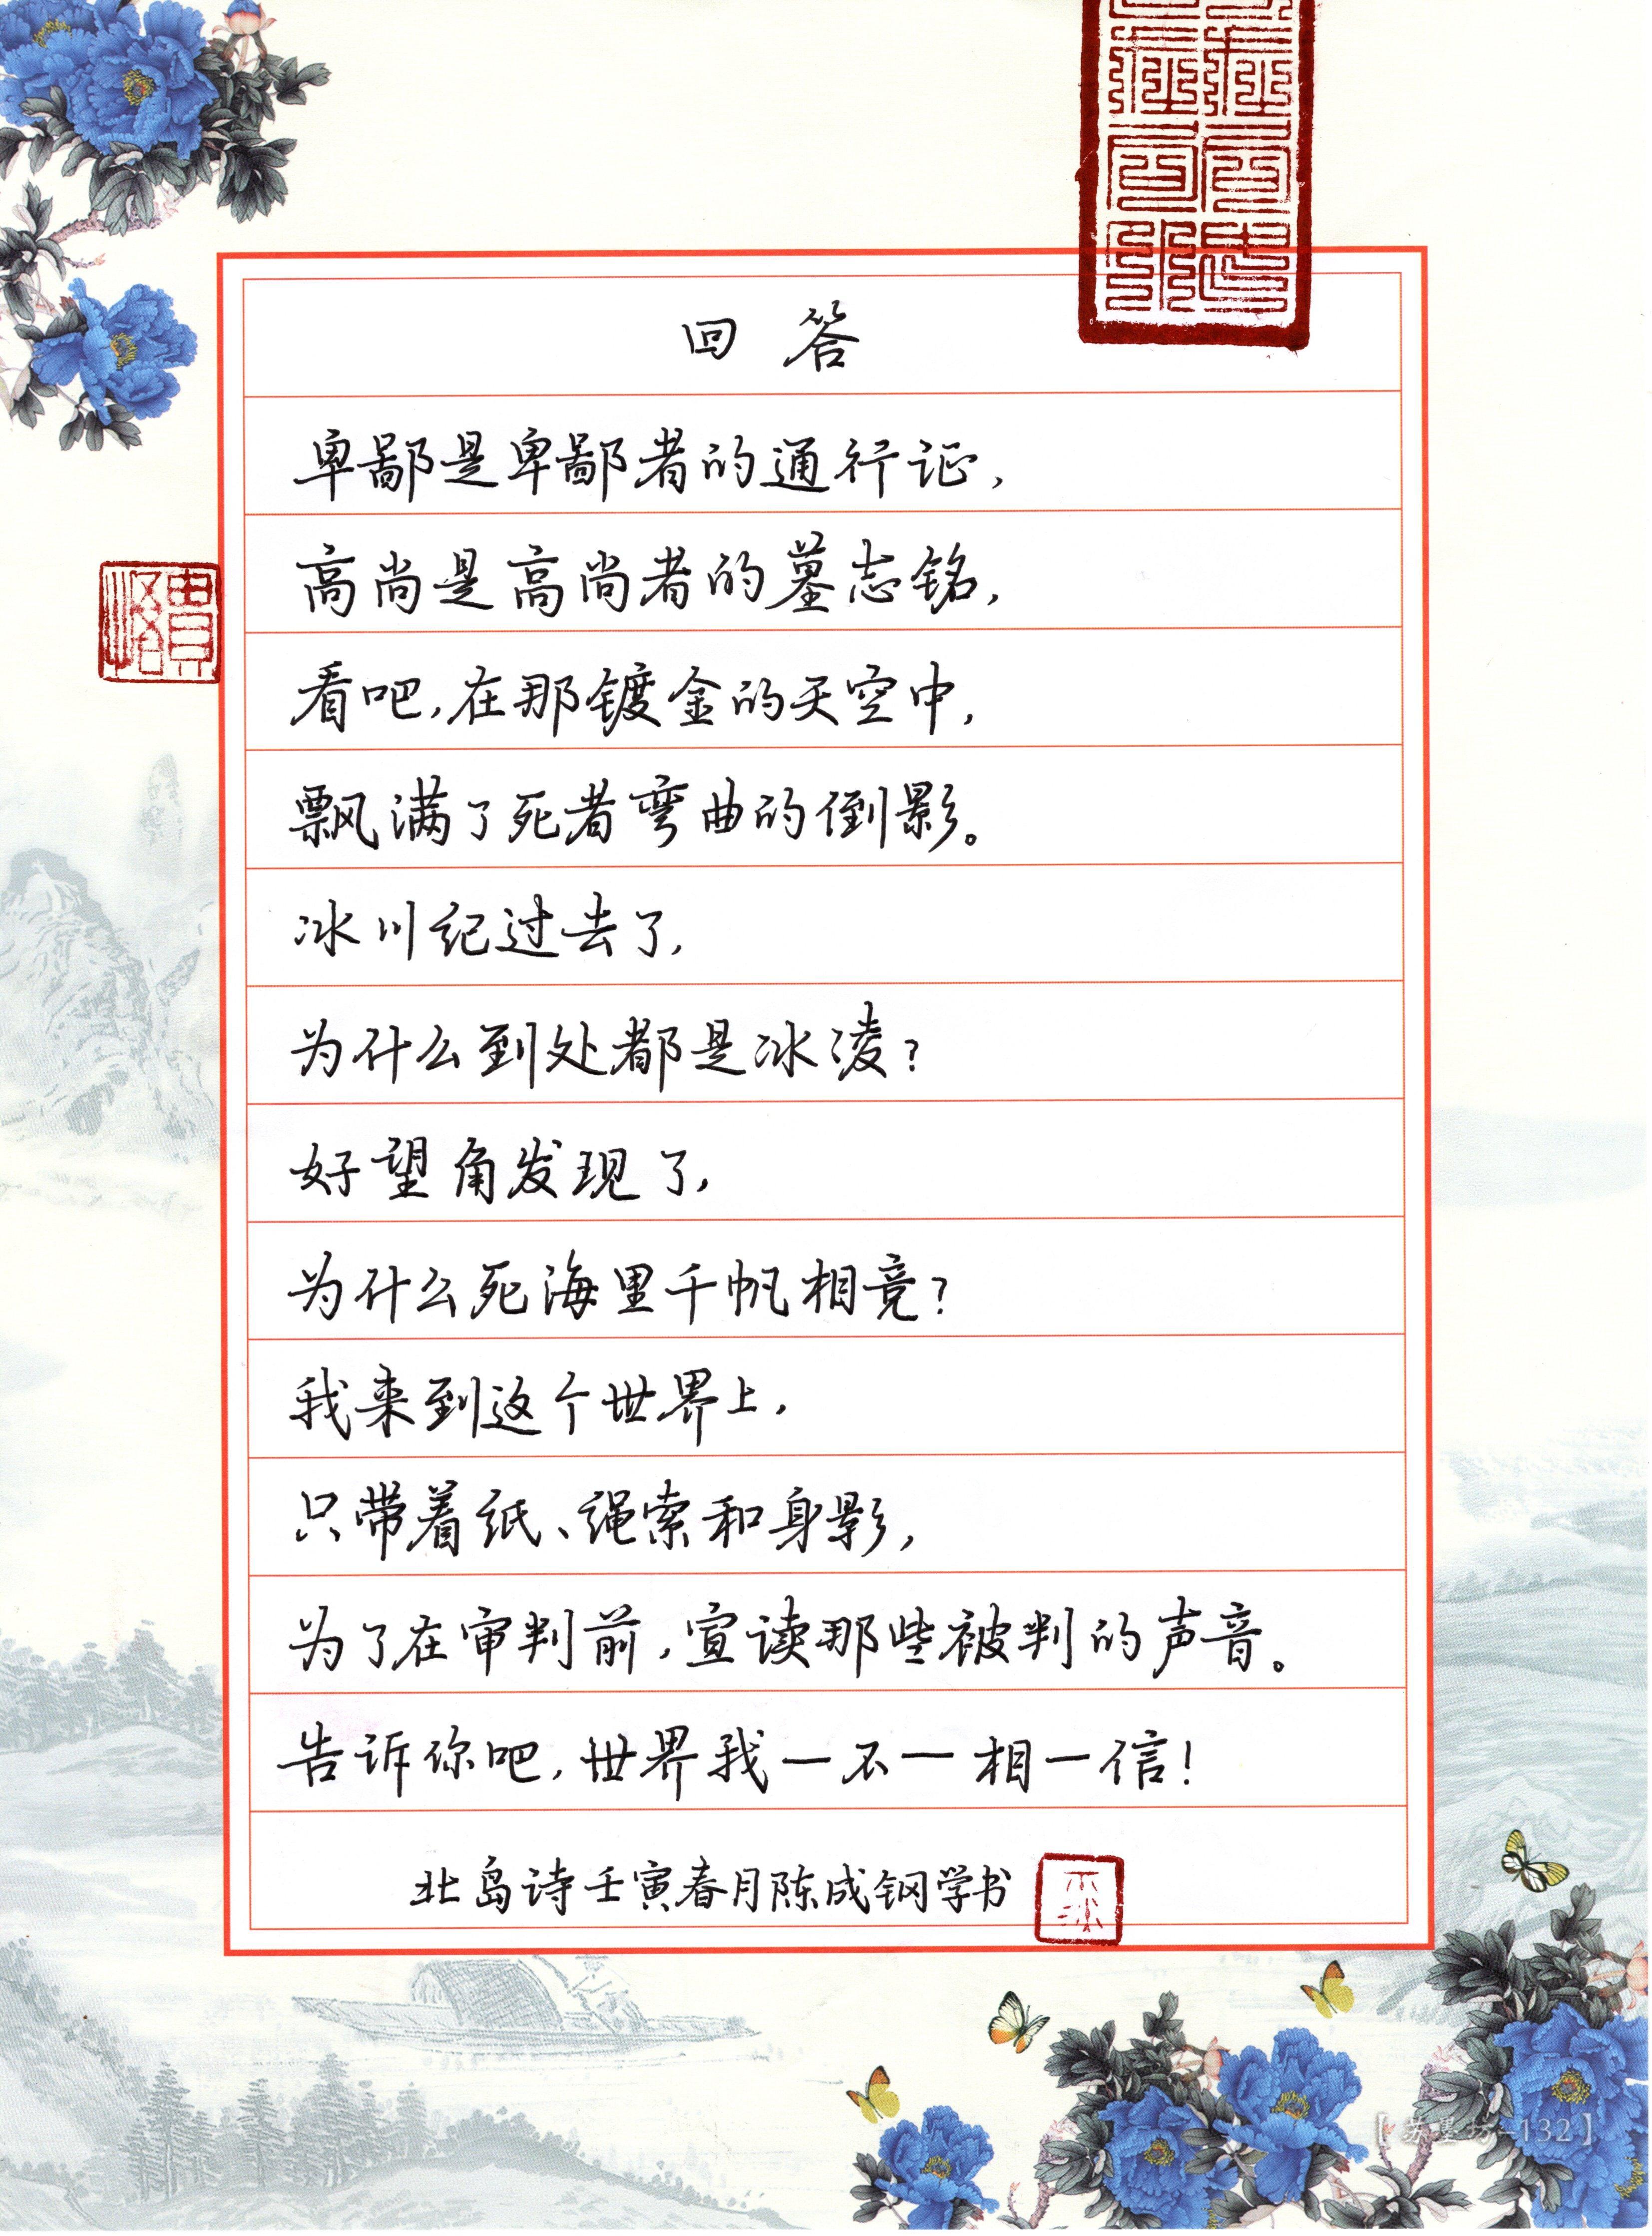 回答
卑鄙是卑鄙者的通行证，
高尚是高尚者的墓志铭，
看吧，在那镀金的天空中，
飘满了死者弯曲的倒影。
冰川纪过去了，
为什么到处都是冰凌？
好望角发现了，
为什么死海里千帆相竞？
我来到这个世界上，
只带着纸、绳索和身影，
为了在审判前，宣读那些被判的声音。
告诉你吧，世界我一不一相一信！
北岛诗壬寅春月陈成钢学书
【苏墨坊-132】